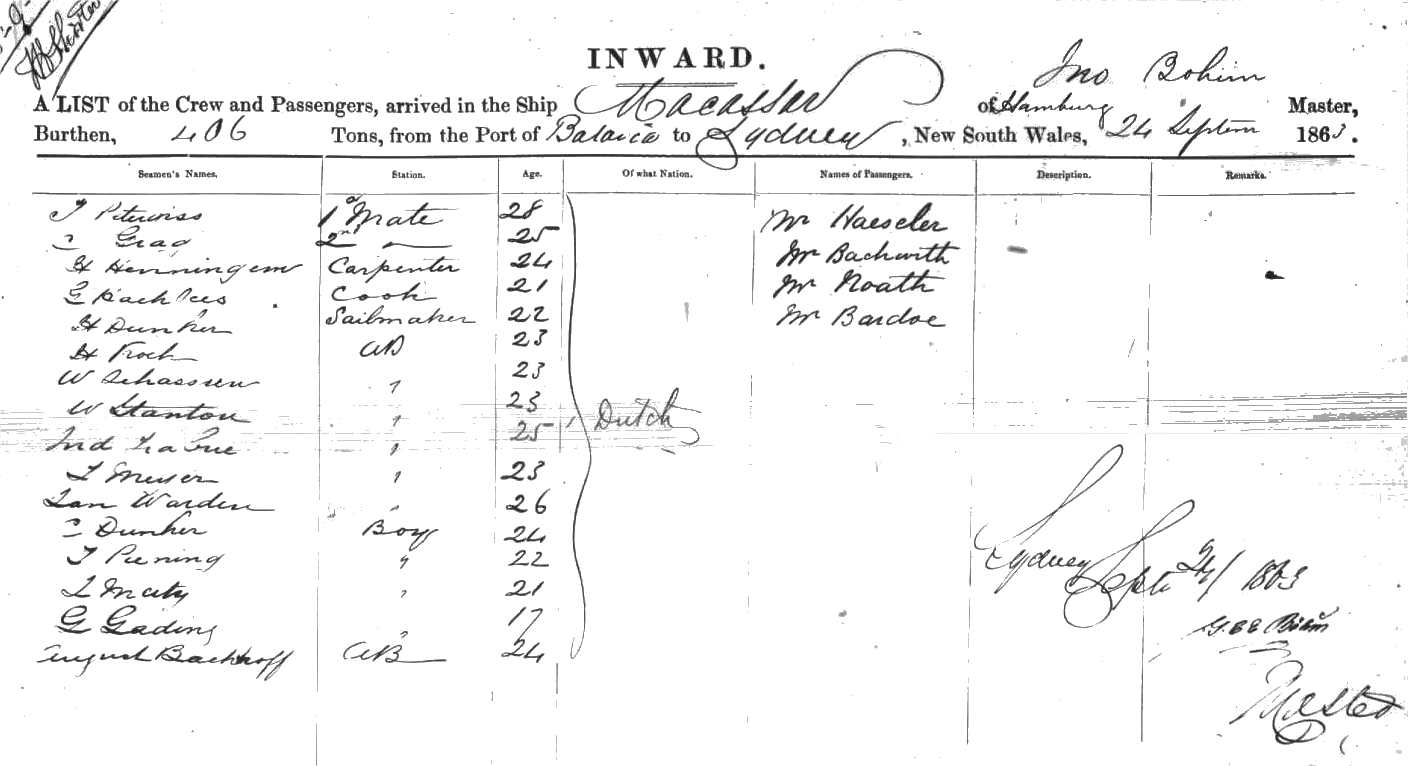 INWARD.
A LIST of the Crew and Passengers, arrived in the Ship Macassar of Hamburg Jno Bohim Master,
Burthen, 406 Tons, from the Port of Batavia to Sydney, New South Wales, 24 Septem 1863.
Seamen's Names. Station. Age. Of what Nation. Names of Passengers. Description. Remarks.
1st Mate 28 Mr Haeseler
2nd 25 Mr Bachwith
H Henningem Carpenter 24 Mr Noath
Cook 21
H Dunker Sailmaker 22 Mr Bardoe
H Kock AB 23
W 23
W Stanton " 23 Dutch
" 25
Meyer " 23
Jan Warden " 26
C Dunker Boy 24
J Piening " 22
" 21
G Gading " 17
August Backhoff AB 24
Sydney Sept 24/1863
Master